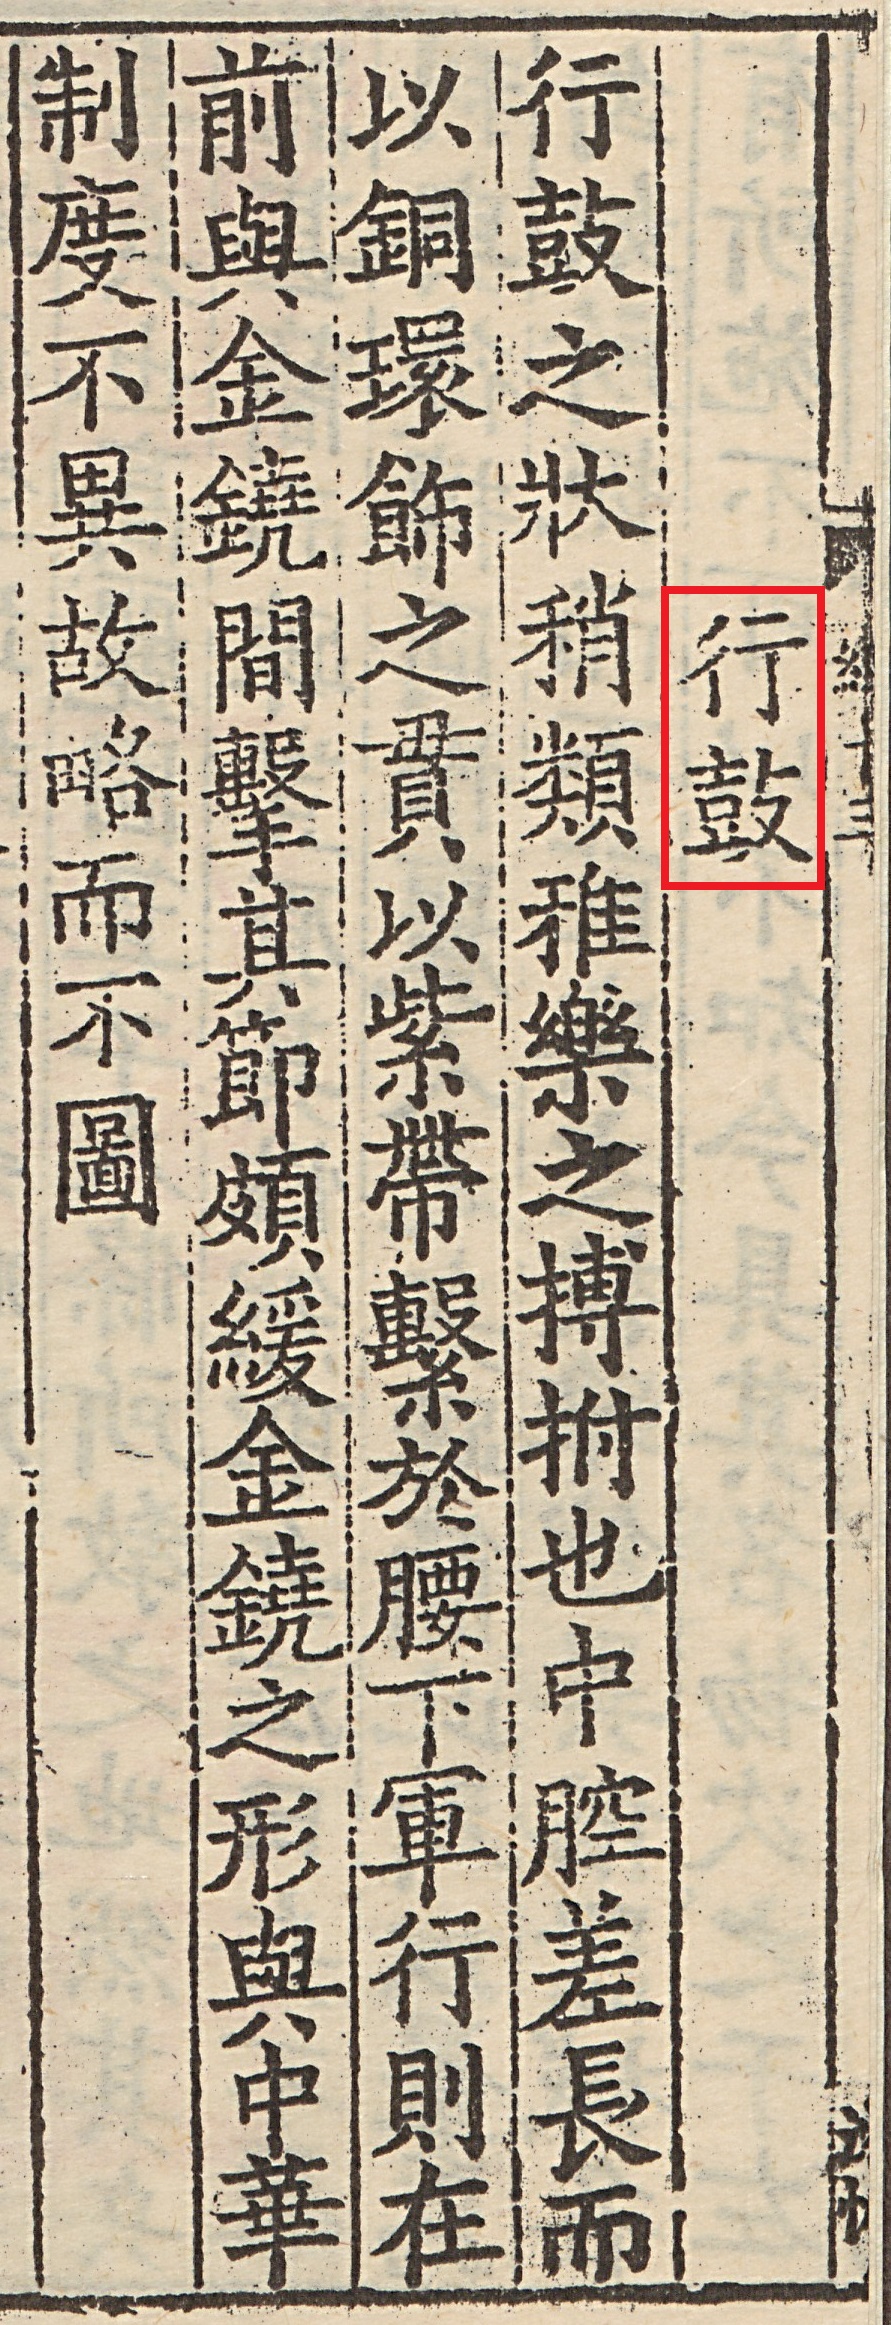 行鼓
行鼓之狀稍類雅樂之搏拊也中腔差長而
以銅環飾之貫以紫帶繫於腰下軍行則在
前與金鐃間擊其節頗緩金鐃之形與中華
制度不異故略而不圖